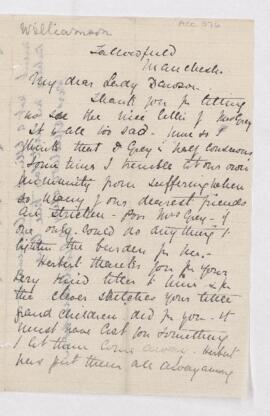 Williamson
Acc 376
Fallowfield
Manchester
My dear Lady Dawson
Thank you for letting
me see the nice letter of Mrs Grey
It is all so sad. Nurse
thinks that Dr Grey is half conscious
Sometimes I tremble at our own
immunity from suffering when
so many of our dearest friends
are stricken. Poor Mrs Grey - if
one only could do anything to
lighten the burden for her.
Herbert thanks you for your
very kind letter to him & for
the clever sketches your little
grand children did for you. It
must have cost you something
to let them come away. Herbert
has put them all away among